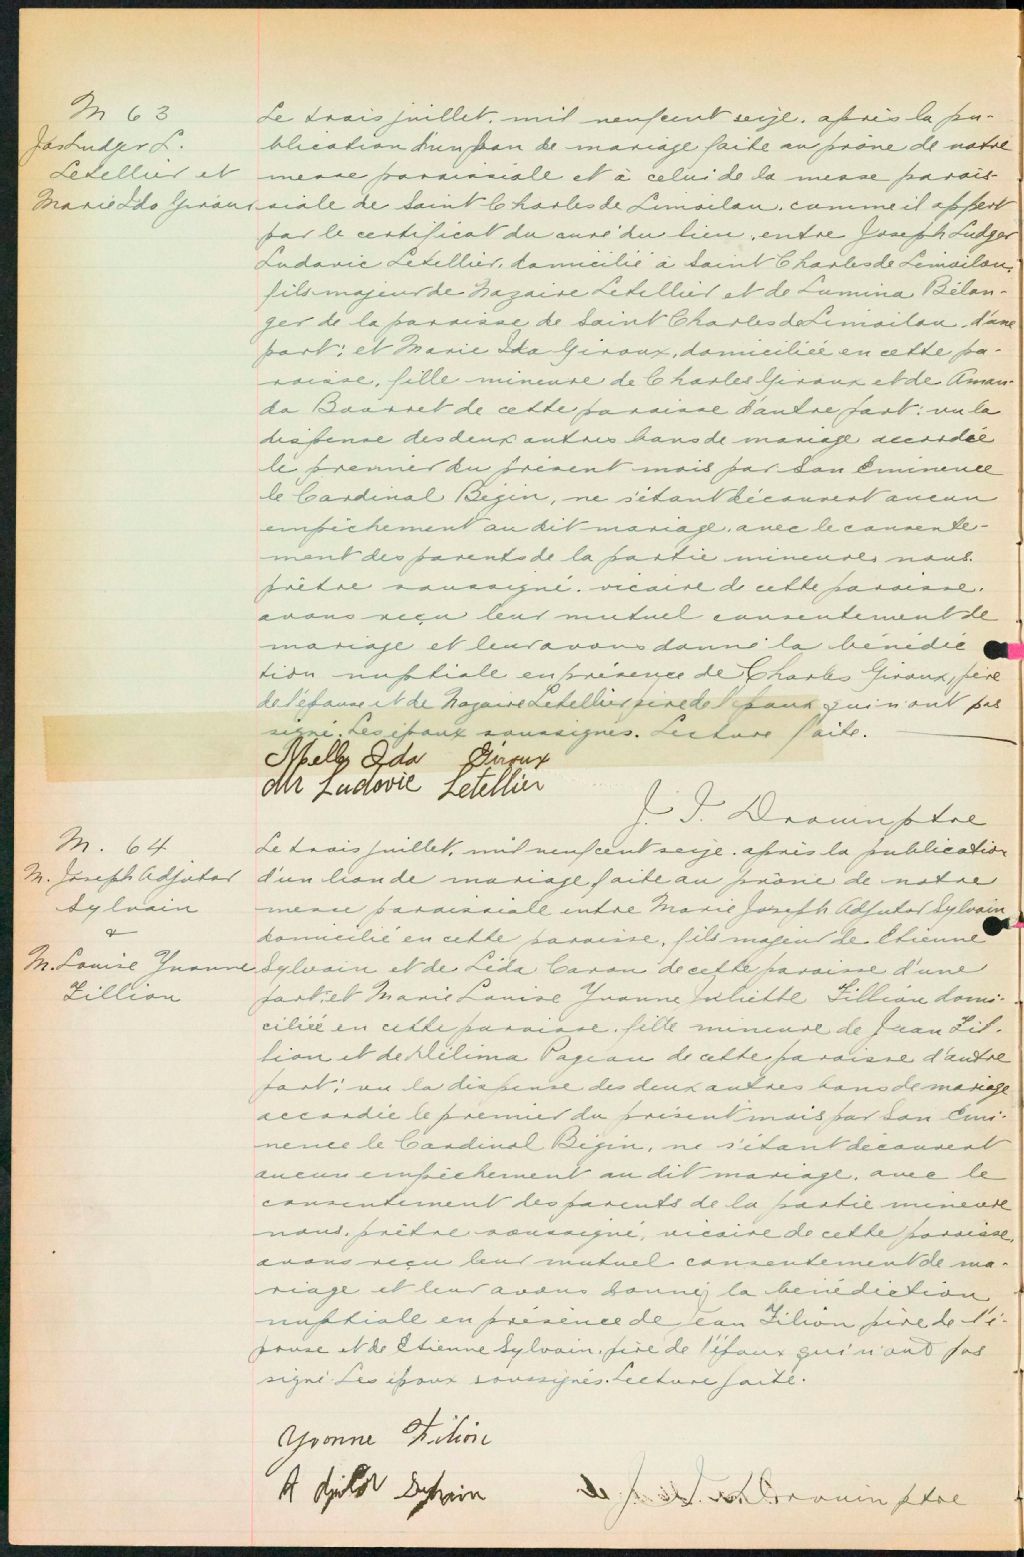 M 63
Jos Ludger L.
Letellier et
Marie Ida Giroux
Le trois juillet, mil neuf cent seize, après la pu-
blication d'un ban de mariage faite au prône de notre
messe paroissiale et à celui de la messe parois-
siale de Saint Charles de Limoilou, comme il appert
par le certificat du curé du lieu, entre Joseph Ludger
Ludovic Letellier, domicilié à Saint Charles de Limoilou,
fils majeur de Nazaire Letellier et de Lumina Bélan-
ger de la paroisse de Saint Charles de Limoilou, d'une
part; et Marie Ida Giroux, domiciliée en cette pa-
roisse, fille mineure de Charles Giroux et de Aman-
da Bourret de cette paroisse d'autre part: vu la
dispense des deux autres bans de mariage accordée
le premier du présent mois par Son Eminence
le Cardinal Bégin, ne s'étant découvert aucun
empêchement au dit mariage, avec le consente-
ment des parents de la partie mineure, nous,
prêtre soussigné, vicaire de cette paroisse,
avons reçu leur mutuel consentement de
mariage et leur avons donné la bénédic
tion nuptiale en présence de Charles Giroux, père
de l'épouse et de Nazaire Letellier père de l'époux qui n'ont pas
signé. Les époux soussignés. Lecture faite.
Melle Ida Giroux
Mr Ludovic Letellier
J. I. Drouin ptre
M. 64
M. Joseph Adjutor
Sylvain
&
M. Louise Yvonne
Fillion
Le trois juillet, mil neuf cent seize, après la publication
d'un ban de mariage faite au prône de notre
messe paroissiale entre Marie Joseph Adjutor Sylvain
domicilié en cette paroisse, fils majeur de Etienne
Sylvain et de Léda Caron de cette paroisse d'une
part; et Marie Louise Yvonne Juliette Fillion domi-
ciliée en cette paroisse, fille mineure de Jean Fil-
lion et de Délima Pageau de cette paroisse d'autre
part; vu la dispense des deux autres bans de mariage
accordée le premier du présent mois par Son Emi-
nence le Cardinal Bégin, ne s'étant découvert
aucun empêchement au dit mariage, avec le
consentement des parents de la partie mineure
nous, prêtre soussigné, vicaire de cette paroisse,
avons reçu leur mutuel consentement de ma-
riage et leur avons donné la bénédiction
nuptiale en présence de Jean Filion père de l'é-
pouse et de Etienne Sylvain, père de l'époux qui n'ont pas
signé. Les époux soussignés. Lecture faite.
Yvonne Filion
Adjutor Sylvain
J. I. Drouin ptre